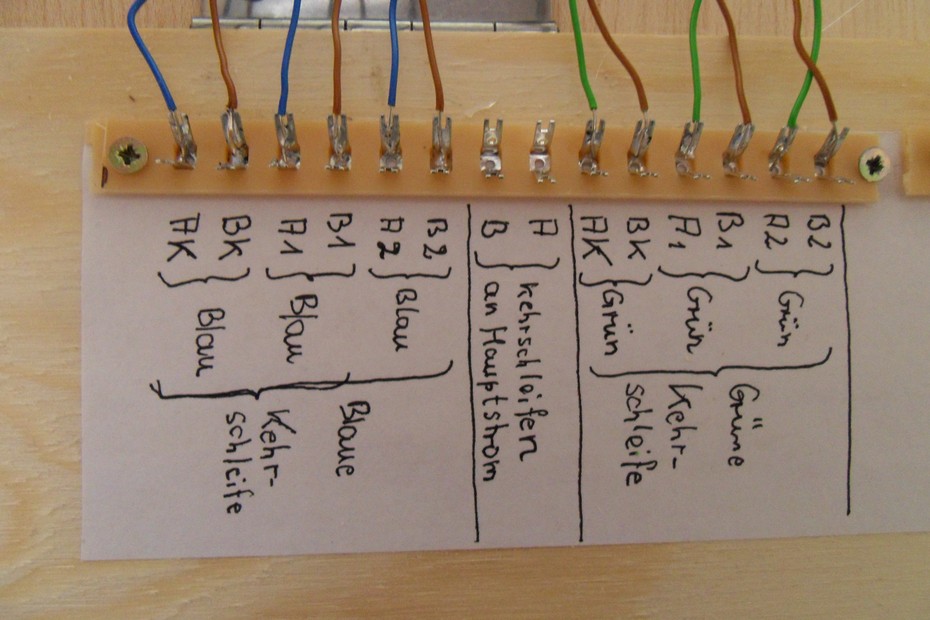 B2
A2 } Grün
B1 Grüne
A1 } Grün Kehr-
BK schleife
AK } Grün
A kehrschleifen
B } an Hauptstrom
B2
A2 } Blau
B1 Blaue
A1 } Blau Kehr-
BK schleife
AK } Blau